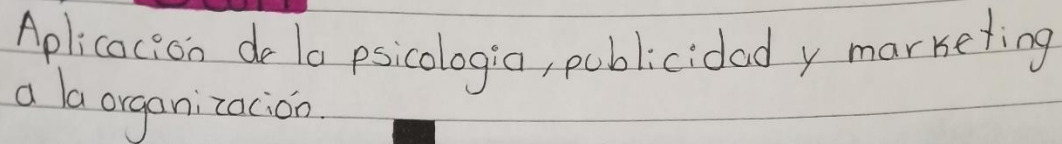 Aplicación de la psicologia, publicidad y marketing
a la organización.